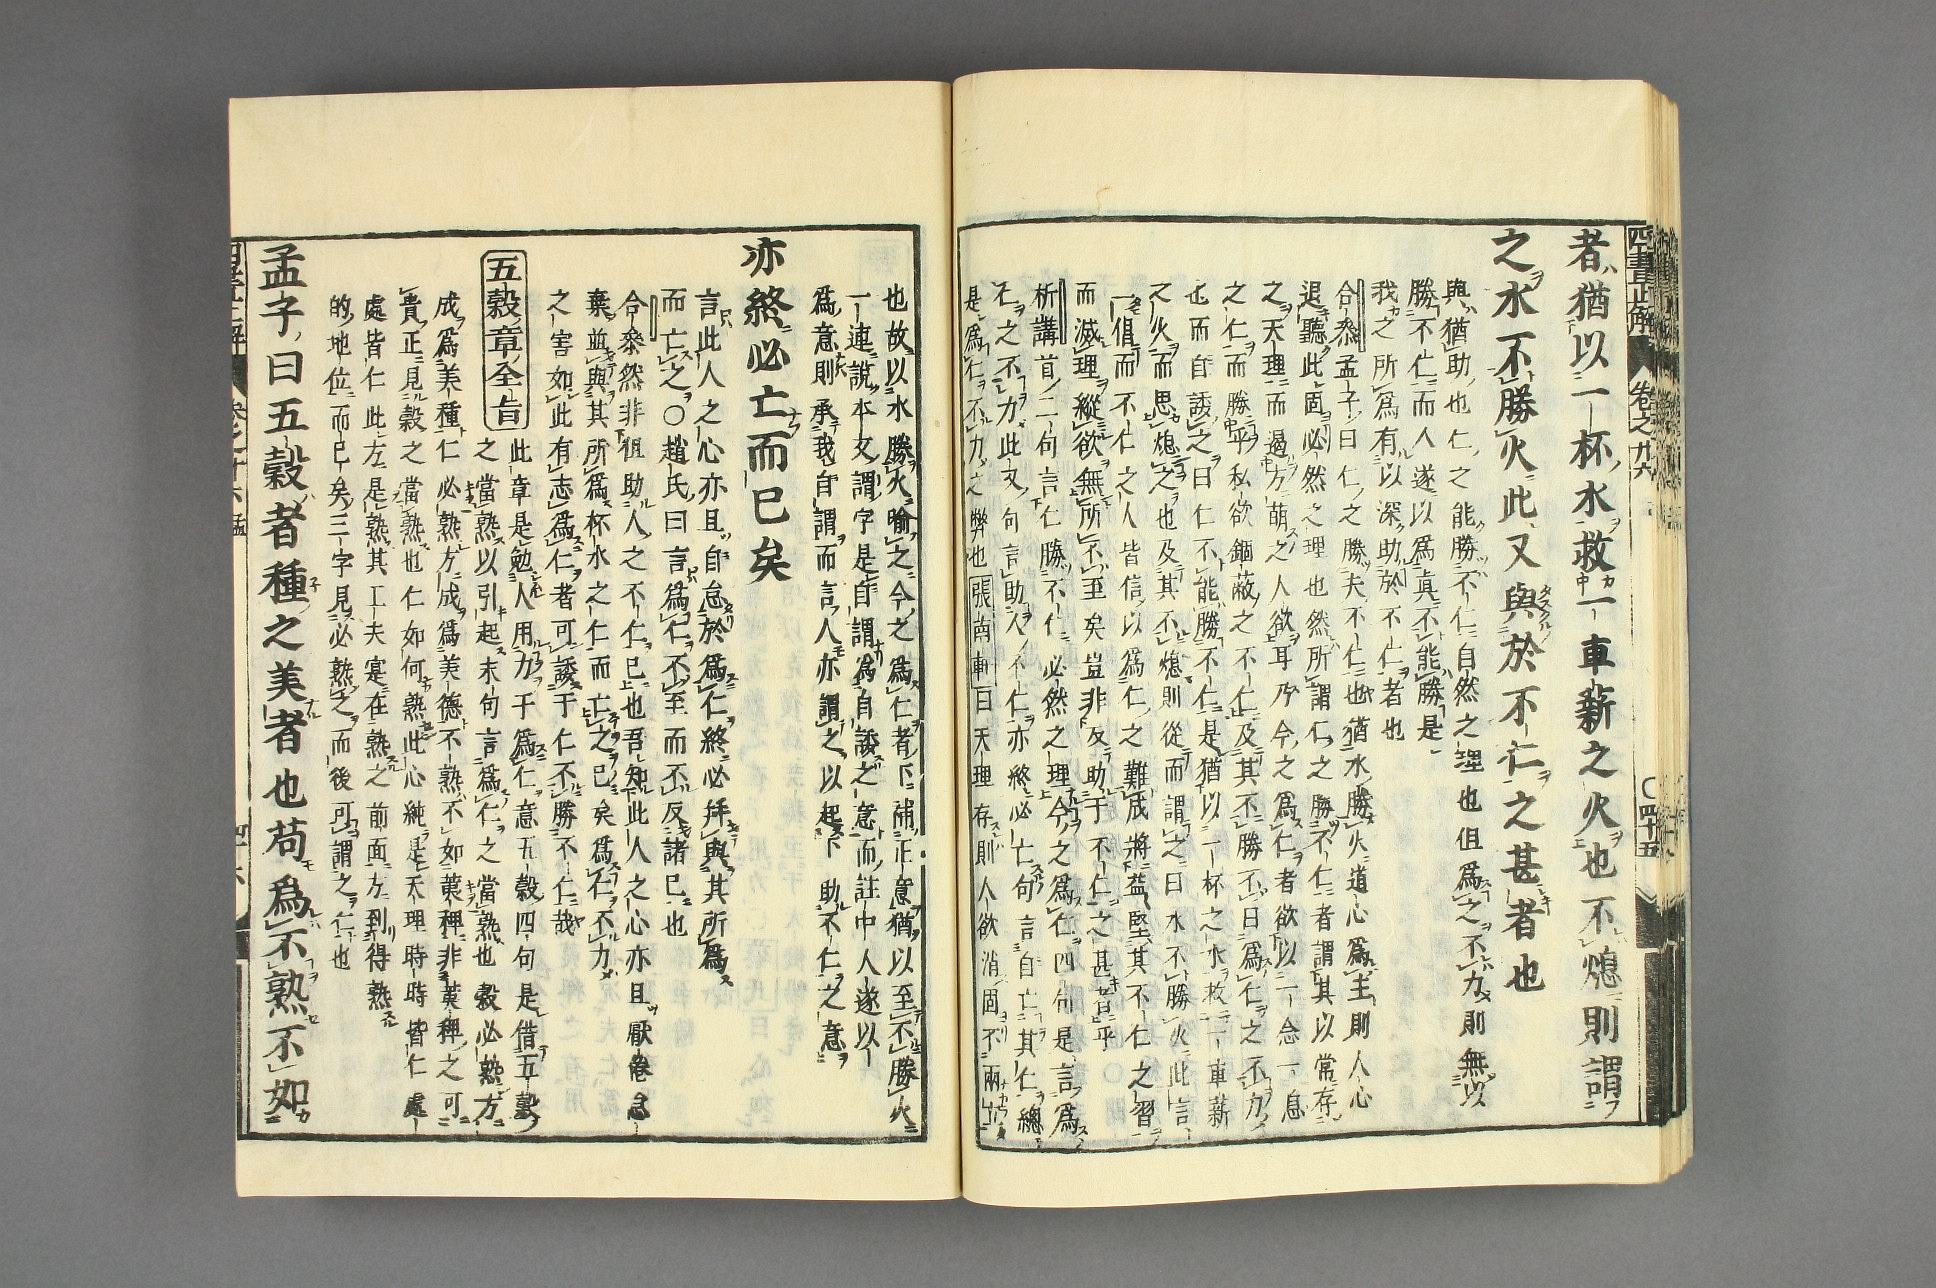 四書正解
卷之廿六
〇四十五
者猶以一杯水救一車薪之火也不熄則謂
之水不勝火此又與於不仁之甚者也
與猶助也仁之能勝不仁自然之理也但爲之不力則無以
勝不仁而人遂以爲真不能勝是
我之所爲有以深助於不仁者也
合參孟子曰仁之勝夫不仁也猶水勝火道心爲主則人心
退聽此固必然之理也然所謂仁之勝不仁者謂其以常存
之天理而過方萌之人欲耳乃今之爲仁者欲以一念一息
之仁而勝乎私欲錮蔽之不仁及其不勝不曰爲仁之不力
也而自諉之曰仁不能勝不仁是猶以一杯之水救一車薪
之火而思熄之也及其不熄則從而謂之曰水不勝火此言
一倡而不仁之人皆信以爲仁之難成將益堅其不仁之習
而滅理縱欲無所不至矣豈非反助于不仁之甚者乎
析講首二句言仁勝不仁必然之理今之爲仁四句是言爲
仁之不力此又句言助人不仁亦終必亡句言自亡其仁總
是爲仁不力之弊也張南軒曰天理存則人欲消固不兩立
也故以水勝火喻之今之爲仁者下補正意猶以至不勝火
一連說本文謂字是自謂爲自諉之意而註中人遂以
爲意則承我自謂而言人亦謂之以起下助不仁之意
亦終必亡而已矣
言此人之心亦且自怠於爲仁終必并與其所爲
而亡之〇趙氏曰言爲仁不至而不反諸己也
合參然非徂助人之不仁已也吾知此人之心亦且厭倦怠
棄並與其所爲杯水之仁而亡之已矣爲仁不力
之害如此有志爲仁者可諉于仁不勝不仁哉
五穀章全旨
此章是勉人用力于爲仁意五穀四句是借五穀
之當熟以引起末句言爲仁之當熟也穀必熟方
成爲美種仁必熟方成爲美德不熟不如荑稗非荑稗之可
貴正見穀之當熟也仁如何熟此心純是天理時時皆仁處
處皆仁此方是熟其工夫寔在熟之前面方到得熟
的地位而已矣三字見必熟之而後可謂之仁也
孟子曰五穀者種之美者也苟爲不熟不如